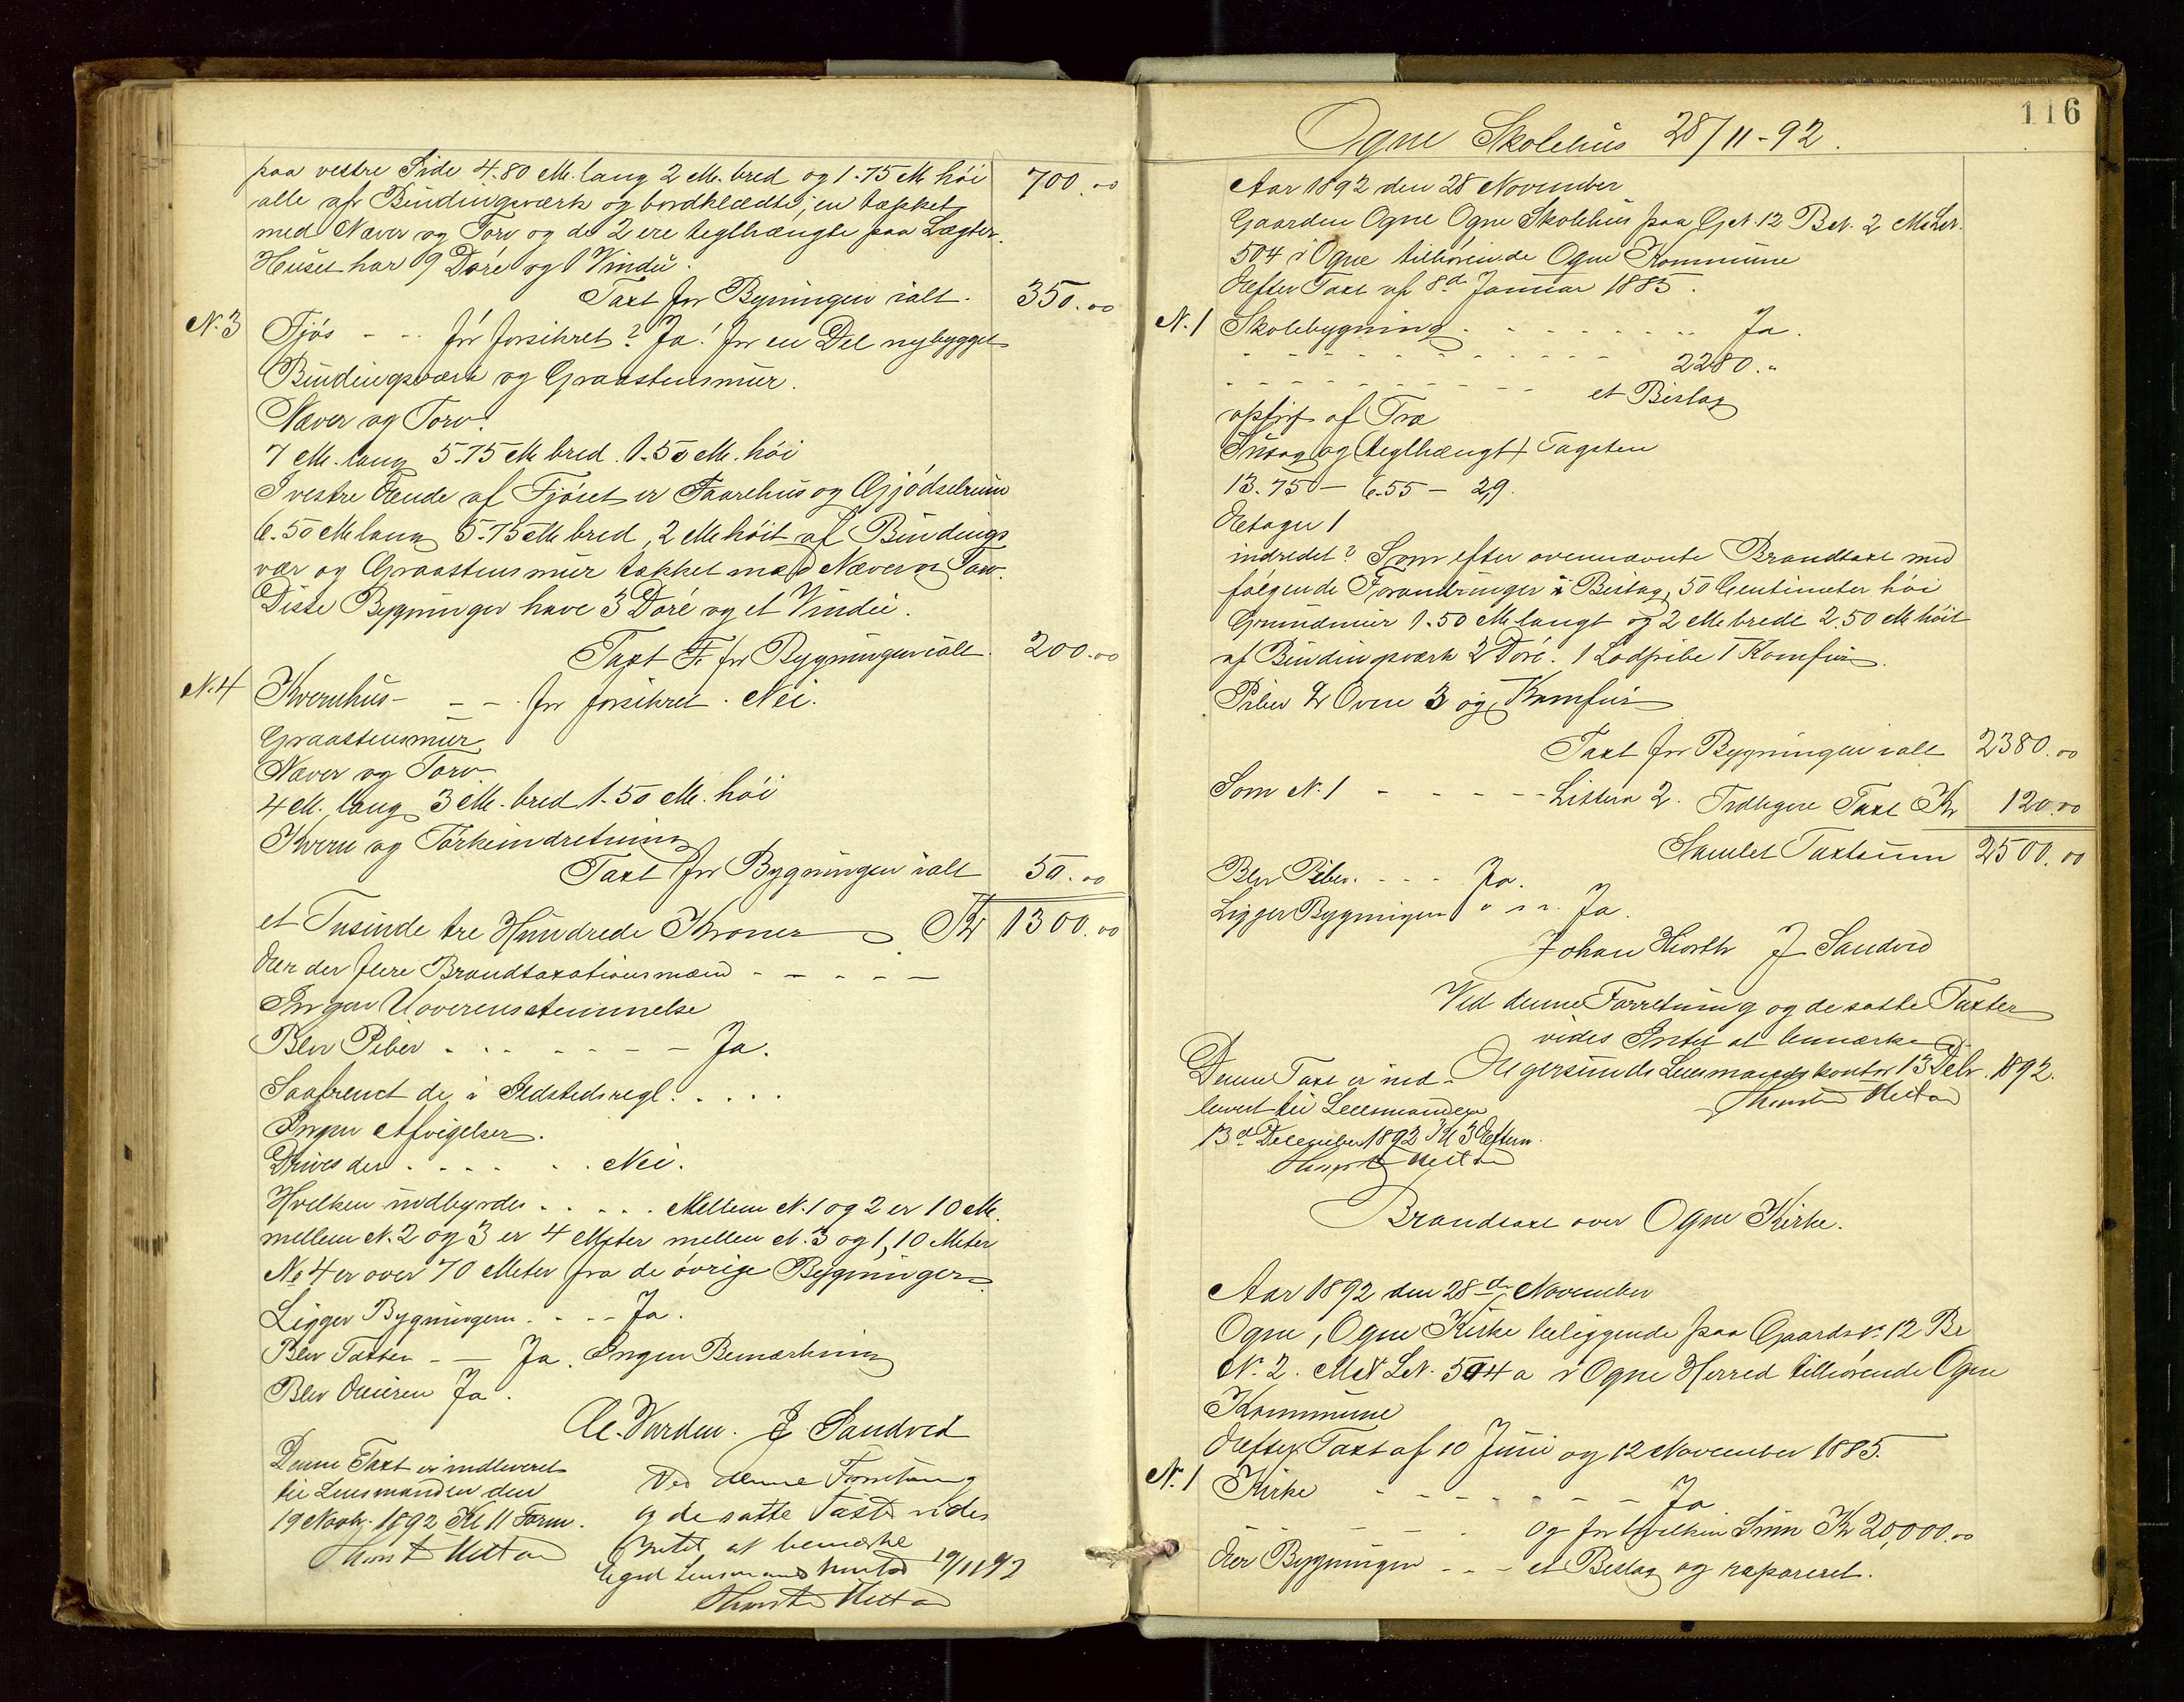 paa vestre Side 4.80 M. lang 2 M. bred og 1.75 M høi 700.00
alle af Bindingsværk og bordklædte, en tækket
med Næver og Torv og de 2 ere teglhængte paa Lægter.
Huset har 9 Døre og 1 Vindu.
Taxt for Bygningen ialt. 350.00
N. 3 Fjøs - - før forsikret? Ja! for en Del nybygget
Bindingsværk og Graastensmur.
Næver og Torv.
7 M. lang 5.75 M bred. 1.50 M. høi
I vestre Ende af Fjøset er Faarehus og Gjødselrum
6.50 M lang 5.75 M bred, 2 M høit af Bindings
vær og Graastensmur takket med Næver og Torv.
Disse Bygninger have 3 Døre og et Vindu.
Taxt F. for Bygningen ialt. 200.00
N. 4 Kvernhus - - - før forsikret. Nei.
Graastensmur
Næver og Torv
4 M. lang 3 M. bred 1.50 M. høi
Kvern og Tørkeindretning
Taxt for Bygningen ialt 50.00
et Tusinde tre Hundrede Kroner Kr 1300.00
Er der flere Brandtaxationsmænd - - - - -
Ingen Uoverensstemmelse
Blev Piber - - - - - - Ja.
Saafremt de i Ildstedsregl. . . . .
Ingen Afvigelser.
Drives der . . . . . . Nei.
Hvilken indbyrdes . . . . . Mellem N. 1 og 2 er 10 M.
mellem N. 2 og 3 er 4 Meter mellem N. 3 og 1, 10 Meter
No 4 er over 70 Meter fra de øvrige Bygninger.
Ligger Bygningen . - - - Ja.
Blev Taxten - - Ja. Ingen Bemærkning
Blev Eieren Ja.
Varden. J Sandved
Denne Taxt er indleveret
til Lensmanden den
19 Novbr. 1892 Kl 11 Form.
Ved denne Forretning
og de satte Taxter vides
Intet at bemærke
Lensmands 19/11 92
116
Ogne Skolehus 28/11-92.
Aar 1892 den 28 November
Gaarden Ogne Ogne Skolehus paa G.N. 12 B.N. 2 M.L.N.
504 i Ogne tilhørende Ogne Kommune
Efter Taxt af 8de Januar 1885.
N. 1 Skolebygning . - - - - - - - Ja.
- - - - - - - - - - - 2280.
- - - - - - - - - - et Bislag
opført af Træ
og teglhængt Tagsten
13.75 - 6.55 - 2,9.
Etager 1
indredet? Som efter ovennævnte Brandtaxt med
følgende Forandringer i Bislag, 50 Centimeter høi
Grundmur 1.50 M langt og 2 M bredt 2.50 M høit
af Bindingsværk 2 Døre. 1 Lodpibe 1 Komfur
Piber 2 Ovne 3 og 1 Komfur
Taxt for Bygningen ialt 2380.00
Som N. 1 - - - - - Littera 2. Tidligere Taxt Kr 120.00
Samlet Taxtsum 2500.00
Blev Piber. - - - Ja.
Ligger Bygningen Ja.
Johan Hiorth J Sandved
Ved denne Forretning og de satte Taxter
vides Intet at bemærke
Egersunds Lensmandskontor 13 Debr. 1892.
Denne Taxt er ind-
leveret til Lensmanden
13de December 1892 Kl 3 Efterm.
Brandtaxt over Ogne Kirke.
Aar 1892 den 28de November
Ogne, Ogne Kirke beliggende paa Gaards N. 12 Br
N. 2. M L.N. 504 a i Ogne Herred tilhørende Ogne
Kommune
Efter Taxt af 10 Juni og 12 November 1885.
N. 1 Kirke - - - - - - - Ja
- - - - - og for hvilken Sum Kr 20,000.00
Er Bygningen - - - et Bislag og repareret.